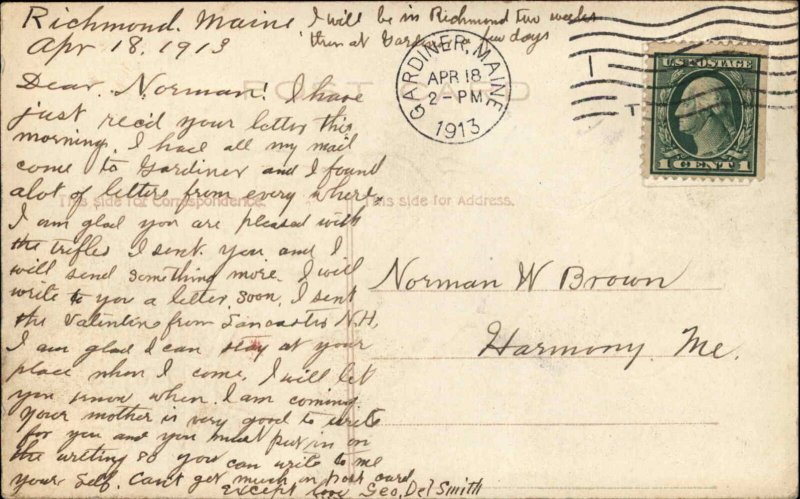 Richmond. Maine
Apr 18. 1913
I will be in Richmond two weeks
then at Gardiner a few days
POST CARD
GARDINER, MAINE
APR 18
2-PM
1913
U.S. POSTAGE
1 CENT 1
This side for Correspondence.
This side for Address.
Dear. Norman! I have
just rec'd your letter this
morning. I have all my mail
come to Gardiner and I found
alot of letters from every where.
I am glad you are pleased with
the trifles I sent you and I
will send something more. I will
write to you a letter soon. I sent
the Valentine from Lancaster N.H.
I am glad I can stay at your
place when I come. I will let
you know when I am coming
Your mother is very good to write
for you and you must put in on
the writing so you can write to me
your self. Can't get much on post card
except love Geo. Del Smith
Norman W Brown
Harmony. Me.